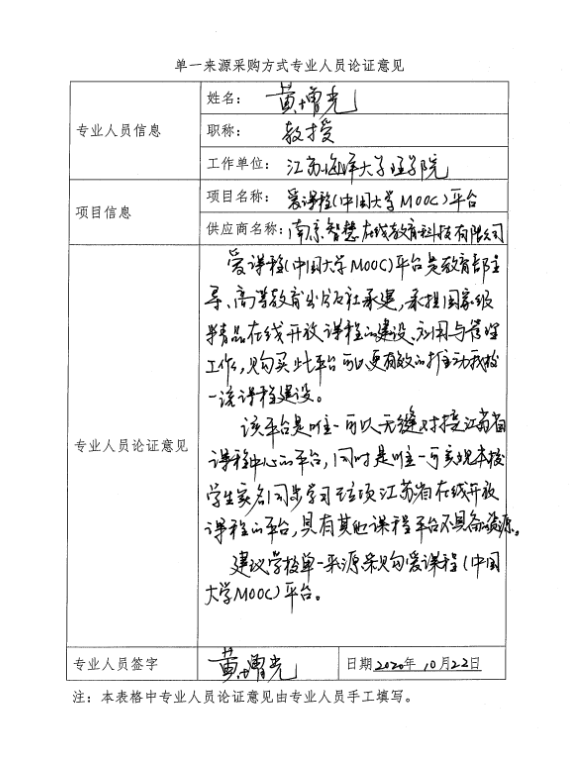 单一来源采购方式专业人员论证意见
专业人员信息
姓名：黄增光
职称：教授
工作单位：江苏海洋大学理学院
项目信息
项目名称：爱课程(中国大学MOOC)平台
供应商名称：南京智慧在线教育科技有限公司
专业人员论证意见
爱课程(中国大学MOOC)平台是教育部主
导、高等教育出版社承建，承担国家级
精品在线开放课程的建设、应用与管理
工作，购买此平台可以更有效的推动我校
一流课程建设。
该平台是唯一可以无缝对接江苏省
课程中心的平台，同时是唯一可实现本校
学生实名同步学习江苏省在线开放
课程的平台，具有其他课程平台不具备的资源。
建议学校单一来源采购爱课程(中国
大学MOOC)平台。
专业人员签字 黄增光 日期 2020年10月22日
注：本表格中专业人员论证意见由专业人员手工填写。